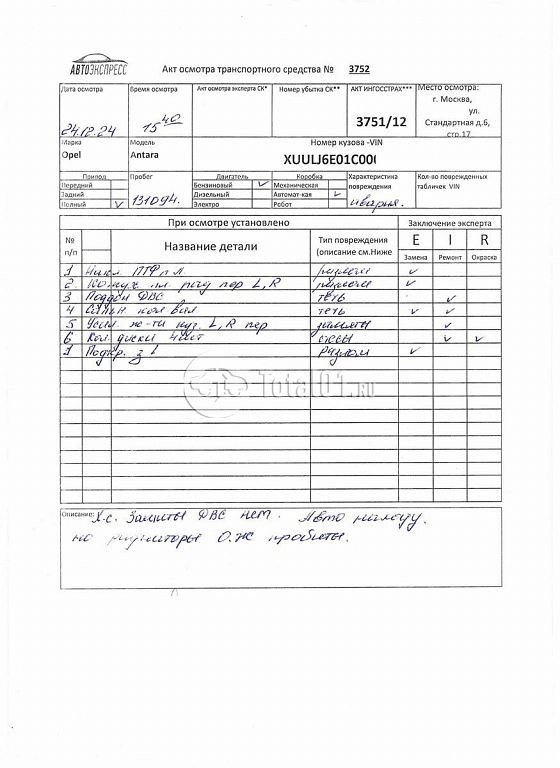 АВТОЭКСПРЕСС
Акт осмотра транспортного средства № 3752
Дата осмотра Время осмотра Акт осмотра эксперта СК* Номер убытка СК** АКТ ИНГОССТРАХ*** Место осмотра:
г. Москва,
ул.
Стандартная д.6,
стр.17
24.12.24 15 40 3751/12
Марка Модель Номер кузова -VIN
Opel Antara XUULJ6E01C00
Привод Пробег Двигатель Коробка Характеристика повреждения Кол-во поврежденных табличек VIN
Передний Бензиновый V Механическая
Задний Дизельный Автомат-кая V
Полный V 131094. Электро Робот
При осмотре установлено Заключение эксперта
№ п/п Название детали Тип повреждения (описание см.Ниже E I R
Замена Ремонт Окраска
1 ПТФ п Л. V
2 пер L, R V
3 Поддон ДВС течь V
4 Сальн кол вал течь V V
5 L, R пер замяты V
6 Кол. диски 4шт V V
1 Подкр. з разлом V
Total01.RU
Описание: Х-с. Защиты ДВС нет. Авто на ходу.
но О.Ж пробиты.